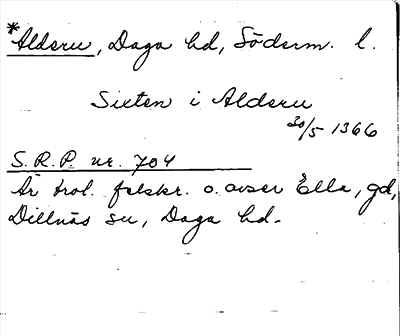 *Alderu, Daga hd, Söderm. l.
Sieten i Alderu
30/5 1366
S.R.P. nr. 704
Är trol. felskr. o. avser Ella, gd,
Dillnäs sn, Daga hd.